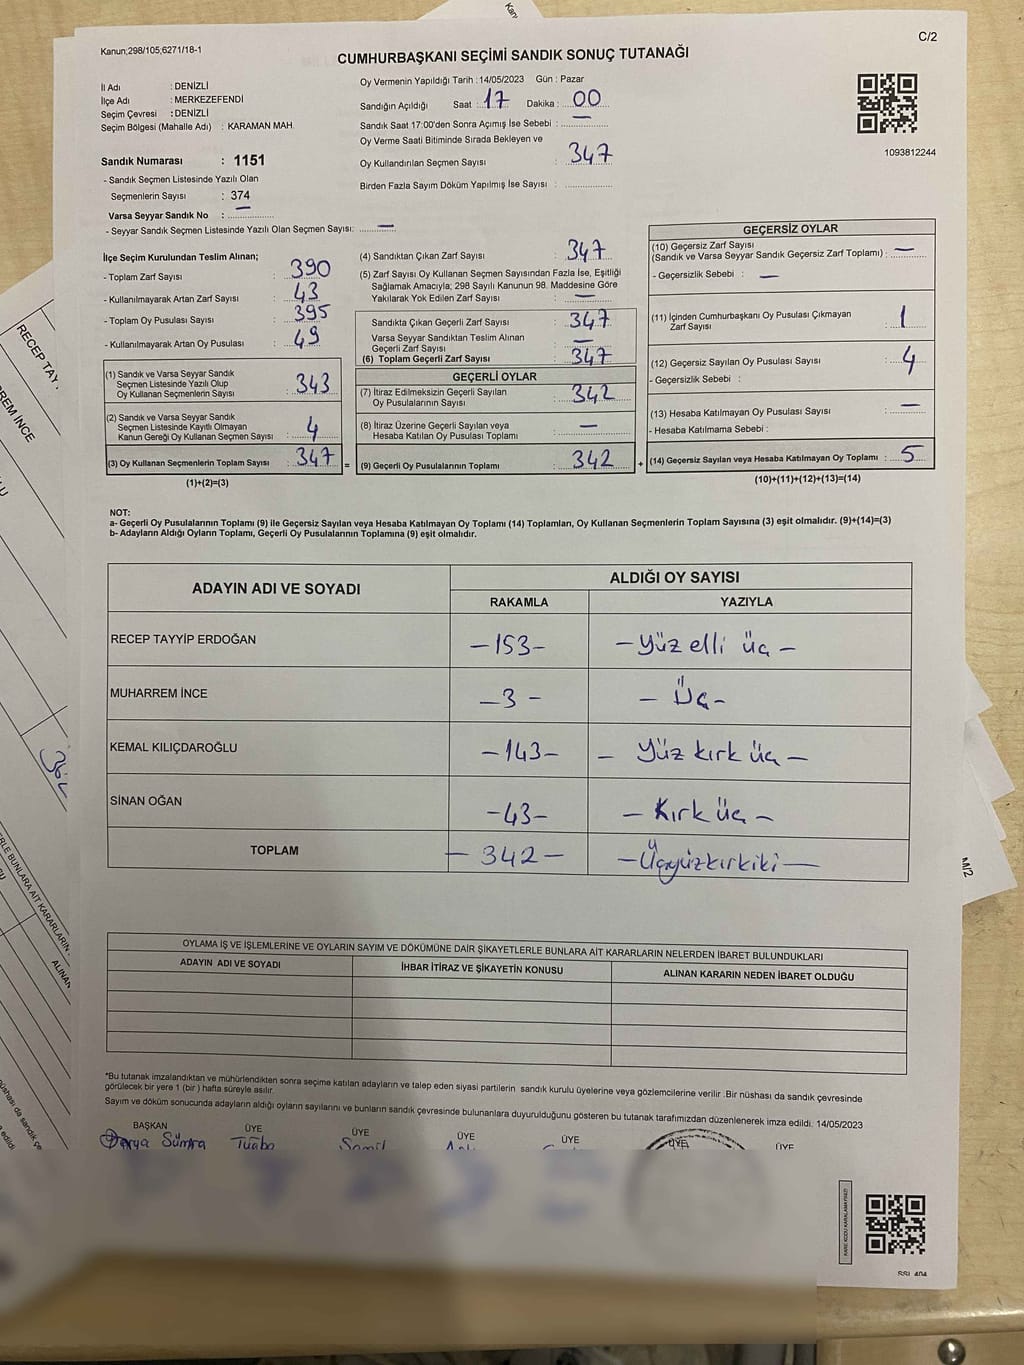 Kanun;298/105,6271/18-1
C/2
CUMHURBAŞKANI SEÇİMİ SANDIK SONUÇ TUTANAĞI
İl Adı : DENİZLİ
İlçe Adı : MERKEZEFENDİ
Seçim Çevresi : DENİZLİ
Seçim Bölgesi (Mahalle Adı) : KARAMAN MAH.
Sandık Numarası : 1151
- Sandık Seçmen Listesinde Yazılı Olan
Seçmenlerin Sayısı : 374
Varsa Seyyar Sandık No : —
- Seyyar Sandık Seçmen Listesinde Yazılı Olan Seçmen Sayısı: —
Oy Vermenin Yapıldığı Tarih : 14/05/2023 Gün : Pazar
Sandığın Açıldığı Saat : 17 Dakika : 00
Sandık Saat 17:00'den Sonra Açımış İse Sebebi : —
Oy Verme Saati Bitiminde Sırada Bekleyen ve
Oy Kullandırılan Seçmen Sayısı : 347
Birden Fazla Sayım Döküm Yapılmış İse Sayısı :
1093812244
İlçe Seçim Kurulundan Teslim Alınan;
- Toplam Zarf Sayısı : 390
- Kullanılmayarak Artan Zarf Sayısı : 43
- Toplam Oy Pusulası Sayısı : 395
- Kullanılmayarak Artan Oy Pusulası : 49
(1) Sandık ve Varsa Seyyar Sandık
Seçmen Listesinde Yazılı Olup
Oy Kullanan Seçmenlerin Sayısı : 343
(2) Sandık ve Varsa Seyyar Sandık
Seçmen Listesinde Kayıtlı Olmayan
Kanun Gereği Oy Kullanan Seçmen Sayısı : 4
(3) Oy Kullanan Seçmenlerin Toplam Sayısı : 347
(1)+(2)=(3)
(4) Sandıktan Çıkan Zarf Sayısı : 347
(5) Zarf Sayısı Oy Kullanan Seçmen Sayısından Fazla İse, Eşitliği
Sağlamak Amacıyla; 298 Sayılı Kanunun 98. Maddesine Göre
Yakılarak Yok Edilen Zarf Sayısı : —
Sandıkta Çıkan Geçerli Zarf Sayısı : 347
Varsa Seyyar Sandıktan Teslim Alınan
Geçerli Zarf Sayısı : —
(6) Toplam Geçerli Zarf Sayısı : 347
GEÇERLİ OYLAR
(7) İtiraz Edilmeksizin Geçerli Sayılan
Oy Pusulalarının Sayısı : 342
(8) İtiraz Üzerine Geçerli Sayılan veya
Hesaba Katılan Oy Pusulası Toplamı : —
= (9) Geçerli Oy Pusulalarının Toplamı : 342
GEÇERSİZ OYLAR
(10) Geçersiz Zarf Sayısı
(Sandık ve Varsa Seyyar Sandık Geçersiz Zarf Toplamı) : —
- Geçersizlik Sebebi : —
(11) İçinden Cumhurbaşkanı Oy Pusulası Çıkmayan
Zarf Sayısı : 1
(12) Geçersiz Sayılan Oy Pusulası Sayısı : 4
- Geçersizlik Sebebi :
(13) Hesaba Katılmayan Oy Pusulası Sayısı : —
- Hesaba Katılmama Sebebi :
+ (14) Geçersiz Sayılan veya Hesaba Katılmayan Oy Toplamı : 5
(10)+(11)+(12)+(13)=(14)
NOT:
a- Geçerli Oy Pusulalarının Toplamı (9) ile Geçersiz Sayılan veya Hesaba Katılmayan Oy Toplamı (14) Toplamları, Oy Kullanan Seçmenlerin Toplam Sayısına (3) eşit olmalıdır. (9)+(14)=(3)
b- Adayların Aldığı Oyların Toplamı, Geçerli Oy Pusulalarının Toplamına (9) eşit olmalıdır.
ADAYIN ADI VE SOYADI
ALDIĞI OY SAYISI
RAKAMLA YAZIYLA
RECEP TAYYİP ERDOĞAN –153– – Yüz elli üç –
MUHARREM İNCE –3– – Üç –
KEMAL KILIÇDAROĞLU –143– – Yüz kırk üç –
SİNAN OĞAN –43– – Kırk üç –
TOPLAM – 342 – – Üçyüzkırkiki –
OYLAMA İŞ VE İŞLEMLERİNE VE OYLARIN SAYIM VE DÖKÜMÜNE DAİR ŞİKAYETLERLE BUNLARA AİT KARARLARIN NELERDEN İBARET BULUNDUKLARI
ADAYIN ADI VE SOYADI İHBAR İTİRAZ VE ŞİKAYETİN KONUSU ALINAN KARARIN NEDEN İBARET OLDUĞU
*Bu tutanak imzalandıktan ve mühürlendikten sonra seçime katılan adayların ve talep eden siyasi partilerin sandık kurulu üyelerine veya gözlemcilerine verilir .Bir nüshası da sandık çevresinde
görülecek bir yere 1 (bir) hafta süreyle asılır.
Sayım ve döküm sonucunda adayların aldığı oyların sayılarını ve bunların sandık çevresinde bulunanlara duyurulduğunu gösteren bu tutanak tarafımızdan düzenlenerek imza edildi. 14/05/2023
BAŞKAN ÜYE ÜYE ÜYE ÜYE ÜYE ÜYE
Derya Sümra Tuğba
RECEP TAY
REM İNCE
M/2